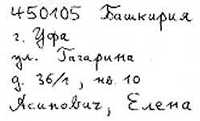 450105 Башкирия
г. Уфа
ул. Гагарина
д. 36/1, кв. 10
Асинович, Елена